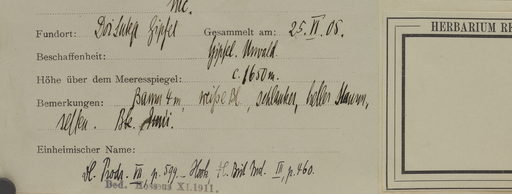 Fundort: Doi Sutep Gipfel Gesammelt am: 25. VI. 05.
HERBARIUM RE
Beschaffenheit: Gipfel. Urwald
Höhe über dem Meeresspiegel: c. 1650 m.
Bemerkungen: Baum 4 m, weiße Bl., schlanker, heller Stamm,
selten.
Einheimischer Name:
Fl. Prodr. VII, p. 599. Hook Fl. Brit Ind. III, p. 460.
Bed. Hosseus XI.1911.